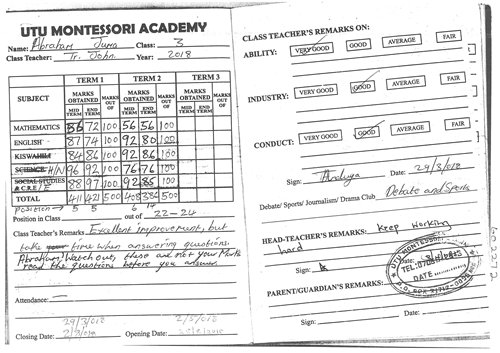 UTU MONTESSORI ACADEMY
Name: Abraham Juma Class: 3
Class Teacher: Tr. John. Year: 2018
TERM 1 TERM 2 TERM 3
SUBJECT MARKS OBTAINED MARKS OUT OF MARKS OBTAINED MARKS OUT OF MARKS OBTAINED MARKS OUT OF
MID TERM END TERM MID TERM END TERM MID TERM END TERM
MATHEMATICS 56 72 100 56 56 100
ENGLISH 87 74 100 92 80 100
KISWAHILI 84 86 100 92 86 100
SCIENCE H/N 96 92 100 76 76 100
SOCIAL STUDIES
&CRE/E 88 97 100 92 88 100
TOTAL 411 421 500 408 386 500
Position → 5 5 6 14
Position in Class out of 22-24
Class Teacher's Remarks Excellent improvement, but
take your time when answering questions.
Abraham! Watch out, these are not your Marks
read the questions before you answer.
Attendance:
29/3/018 2/5/018
Closing Date: 2/8/018 Opening Date:
CLASS TEACHER'S REMARKS ON:
ABILITY: VERY GOOD GOOD AVERAGE FAIR
INDUSTRY: VERY GOOD GOOD AVERAGE FAIR
CONDUCT: VERY GOOD GOOD AVERAGE FAIR
Sign: Date: 29/3/018
Debate/ Sports/ Journalism/ Drama Club Debate and Sports
HEAD-TEACHER'S REMARKS: Keep Working
hard
Sign: Date:
UTU MONTESSORI
TEL:
DATE
P.O. BOX
PARENT/GUARDIAN'S REMARKS:
Sign: Date: